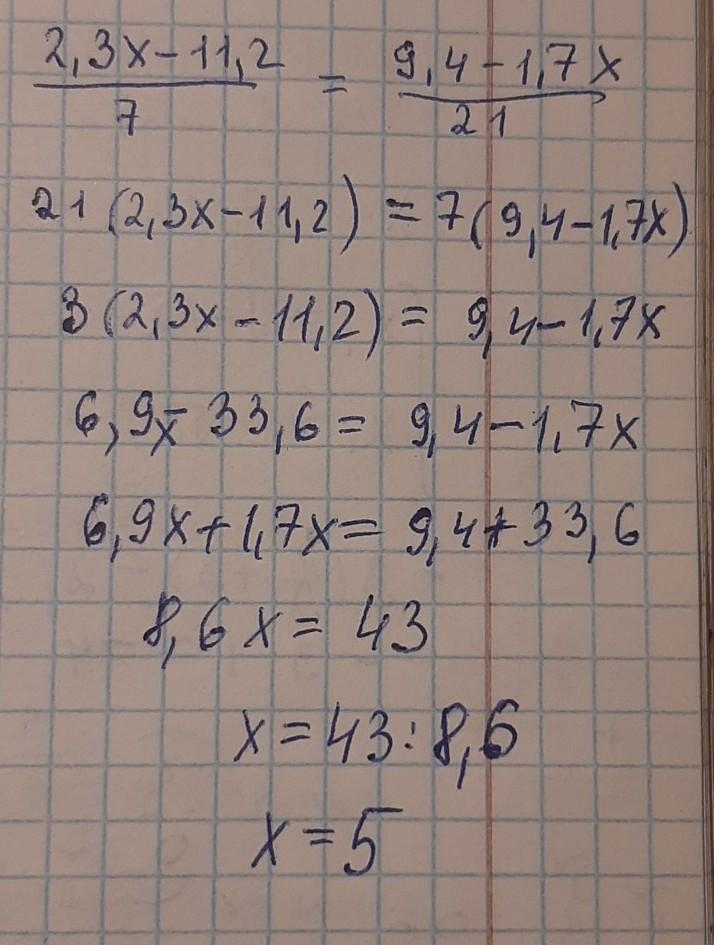 2,3x-11,2 / 7 = 9,4-1,7x / 21
21(2,3x-11,2)=7(9,4-1,7x)
3(2,3x-11,2)=9,4-1,7x
6,9x-33,6=9,4-1,7x
6,9x+1,7x=9,4+33,6
8,6x=43
x=43:8,6
x=5